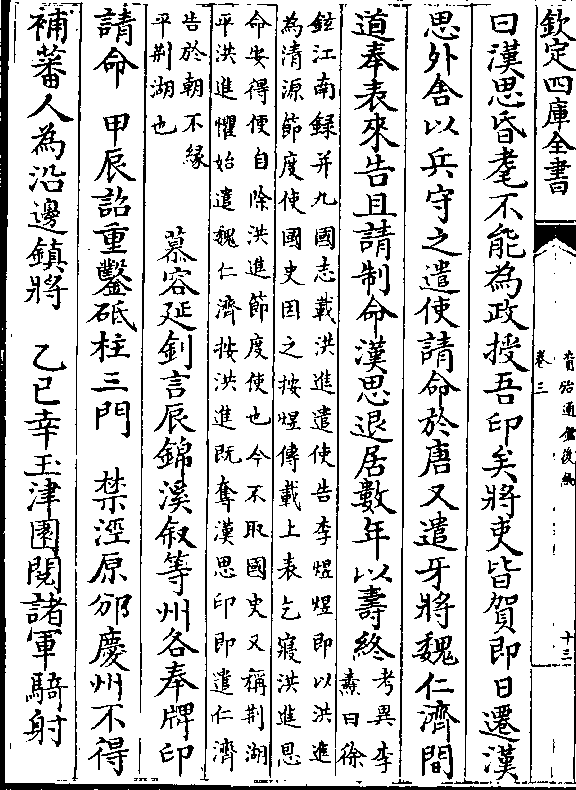 欽定四庫全書
資治通鑑後編
卷三
十三
曰漢思昏耄不能為政授吾印矣將吏皆賀即日遷漢
思外舍以兵守之遣使請命於唐又遣牙將魏仁濟間
道奉表來告且請制命漢思退居數年以壽終
考異李
燾曰徐
鉉江南録并九國志載洪進遣使告李煜煜即以洪進
為清源節度使國史因之按煜傳載上表乞寢洪進恩
命安得便自除洪進節度使也今不取國史又稱荆湖
平洪進懼始遣魏仁濟按洪進既奪漢思印即遣仁濟
告於朝不緣
平荆湖也
慕容延釗言辰錦溪叙等州各奉牌印
請命 甲辰詔重鑿砥柱三門 禁涇原邠慶州不得
補蕃人為沿邊鎮將 乙巳幸玉津園閱諸軍騎射